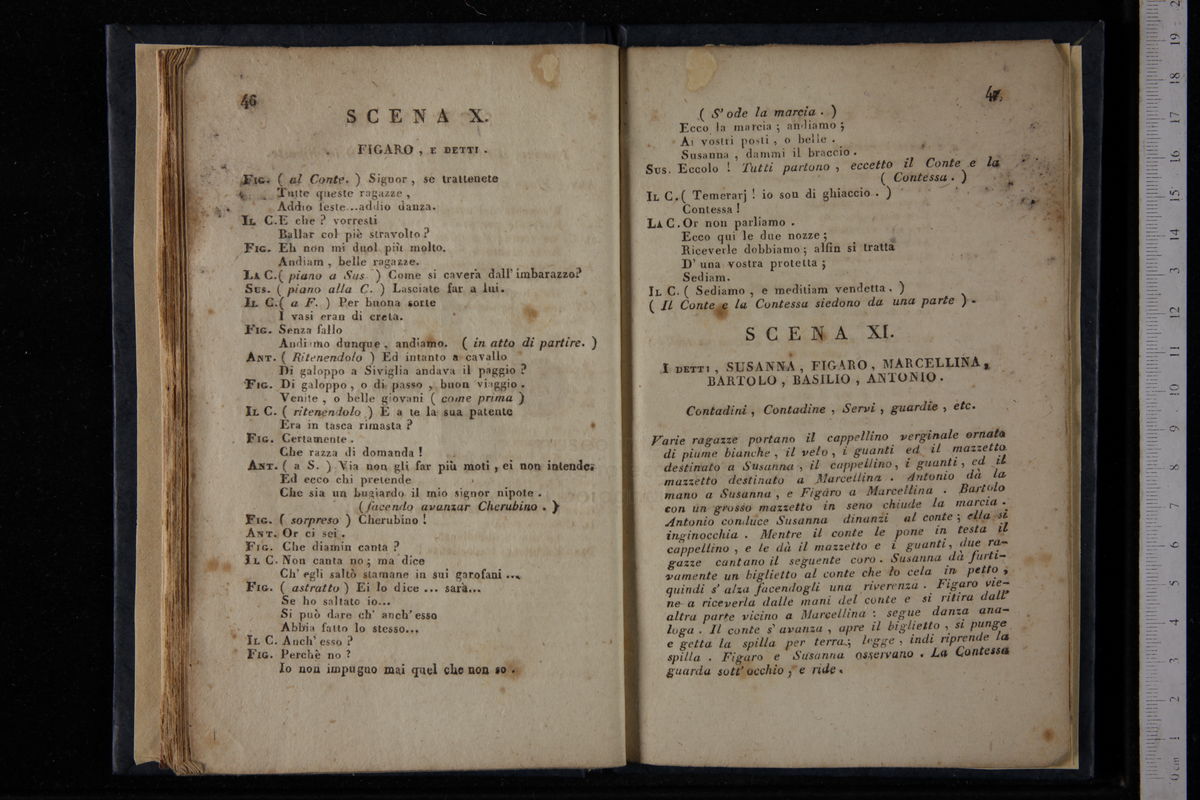 46
SCENA X.
FIGARO, E DETTI.
FIG. ( al Conte. ) Signor, se trattenete
Tutte queste ragazze,
Addio feste...addio danza.
IL C.E che ? vorresti
Ballar col piè stravolto ?
FIG. Eh non mi duol più molto.
Andiam, belle ragazze.
LA C.( piano a Sus. ) Come si caverà dall' imbarazzo?
SUS. ( piano alla C. ) Lasciate far a lui.
IL C.( a F. ) Per buona sorte
I vasi eran di creta.
FIG. Senza fallo
Andiamo dunque, andiamo. ( in atto di partire. )
ANT. ( Ritenendolo ) Ed intanto a cavallo
Di galoppo a Siviglia andava il paggio ?
FIG. Di galoppo, o di passo, buon viaggio.
Venite, o belle giovani ( come prima )
IL C. ( ritenendolo ) E a te la sua patente
Era in tasca rimasta ?
FIG. Certamente.
Che razza di domanda !
ANT. ( a S. ) Via non gli far più moti, ei non intende;
Ed ecco chi pretende
Che sia un bugiardo il mio signor nipote.
(facendo avanzar Cherubino. )
FIG. ( sorpreso ) Cherubino !
ANT. Or ci sei.
FIG. Che diamin canta ?
IL C. Non canta no; ma dice
Ch' egli saltò stamane in sui garofani ...
FIG. ( astratto ) Ei lo dice ... sarà...
Se ho saltato io...
Si può dare ch' anch' esso
Abbia fatto lo stesso...
IL C. Anch' esso ?
FIG. Perchè no ?
Io non impugno mai quel che non so.
47
( S' ode la marcia. )
Ecco la marcia; andiamo;
Ai vostri posti, o belle.
Susanna, dammi il braccio.
SUS. Eccolo ! Tutti partono, eccetto il Conte e la
( Contessa. )
IL C.( Temerarj ! io son di ghiaccio. )
Contessa !
LA C.Or non parliamo.
Ecco qui le due nozze;
Riceverle dobbiamo; alfin si tratta
D' una vostra protetta;
Sediam.
IL C. ( Sediamo, e meditiam vendetta. )
( Il Conte e la Contessa siedono da una parte ).
SCENA XI.
I DETTI, SUSANNA, FIGARO, MARCELLINA,
BARTOLO, BASILIO, ANTONIO.
Contadini, Contadine, Servi, guardie, etc.
Varie ragazze portano il cappellino verginale ornato
di piume bianche, il velo, i guanti ed il mazzetto
destinato a Susanna, il cappellino, i guanti, ed il
mazzetto destinato a Marcellina. Antonio dà la
mano a Susanna, e Figaro a Marcellina. Bartolo
con un grosso mazzetto in seno chiude la marcia.
Antonio conduce Susanna dinanzi al conte; ella si
inginocchia. Mentre il conte le pone in testa il
cappellino, e le dà il mazzetto e i guanti, due ra-
gazze cantano il seguente coro. Susanna dà furti-
vamente un biglietto al conte che lo cela in petto,
quindi s' alza facendogli una riverenza. Figaro vie-
ne a riceverla dalle mani del conte e si ritira dall'
altra parte vicino a Marcellina: segue danza ana-
loga. Il conte s' avanza, apre il biglietto, si punge
e getta la spilla per terra; legge, indi riprende la
spilla. Figaro e Susanna osservano. La Contessa
guarda sott' occhio, e ride.
0 cm 1 2 3 4 5 6 7 8 9 10 11 12 13 14 15 16 17 18 19 2